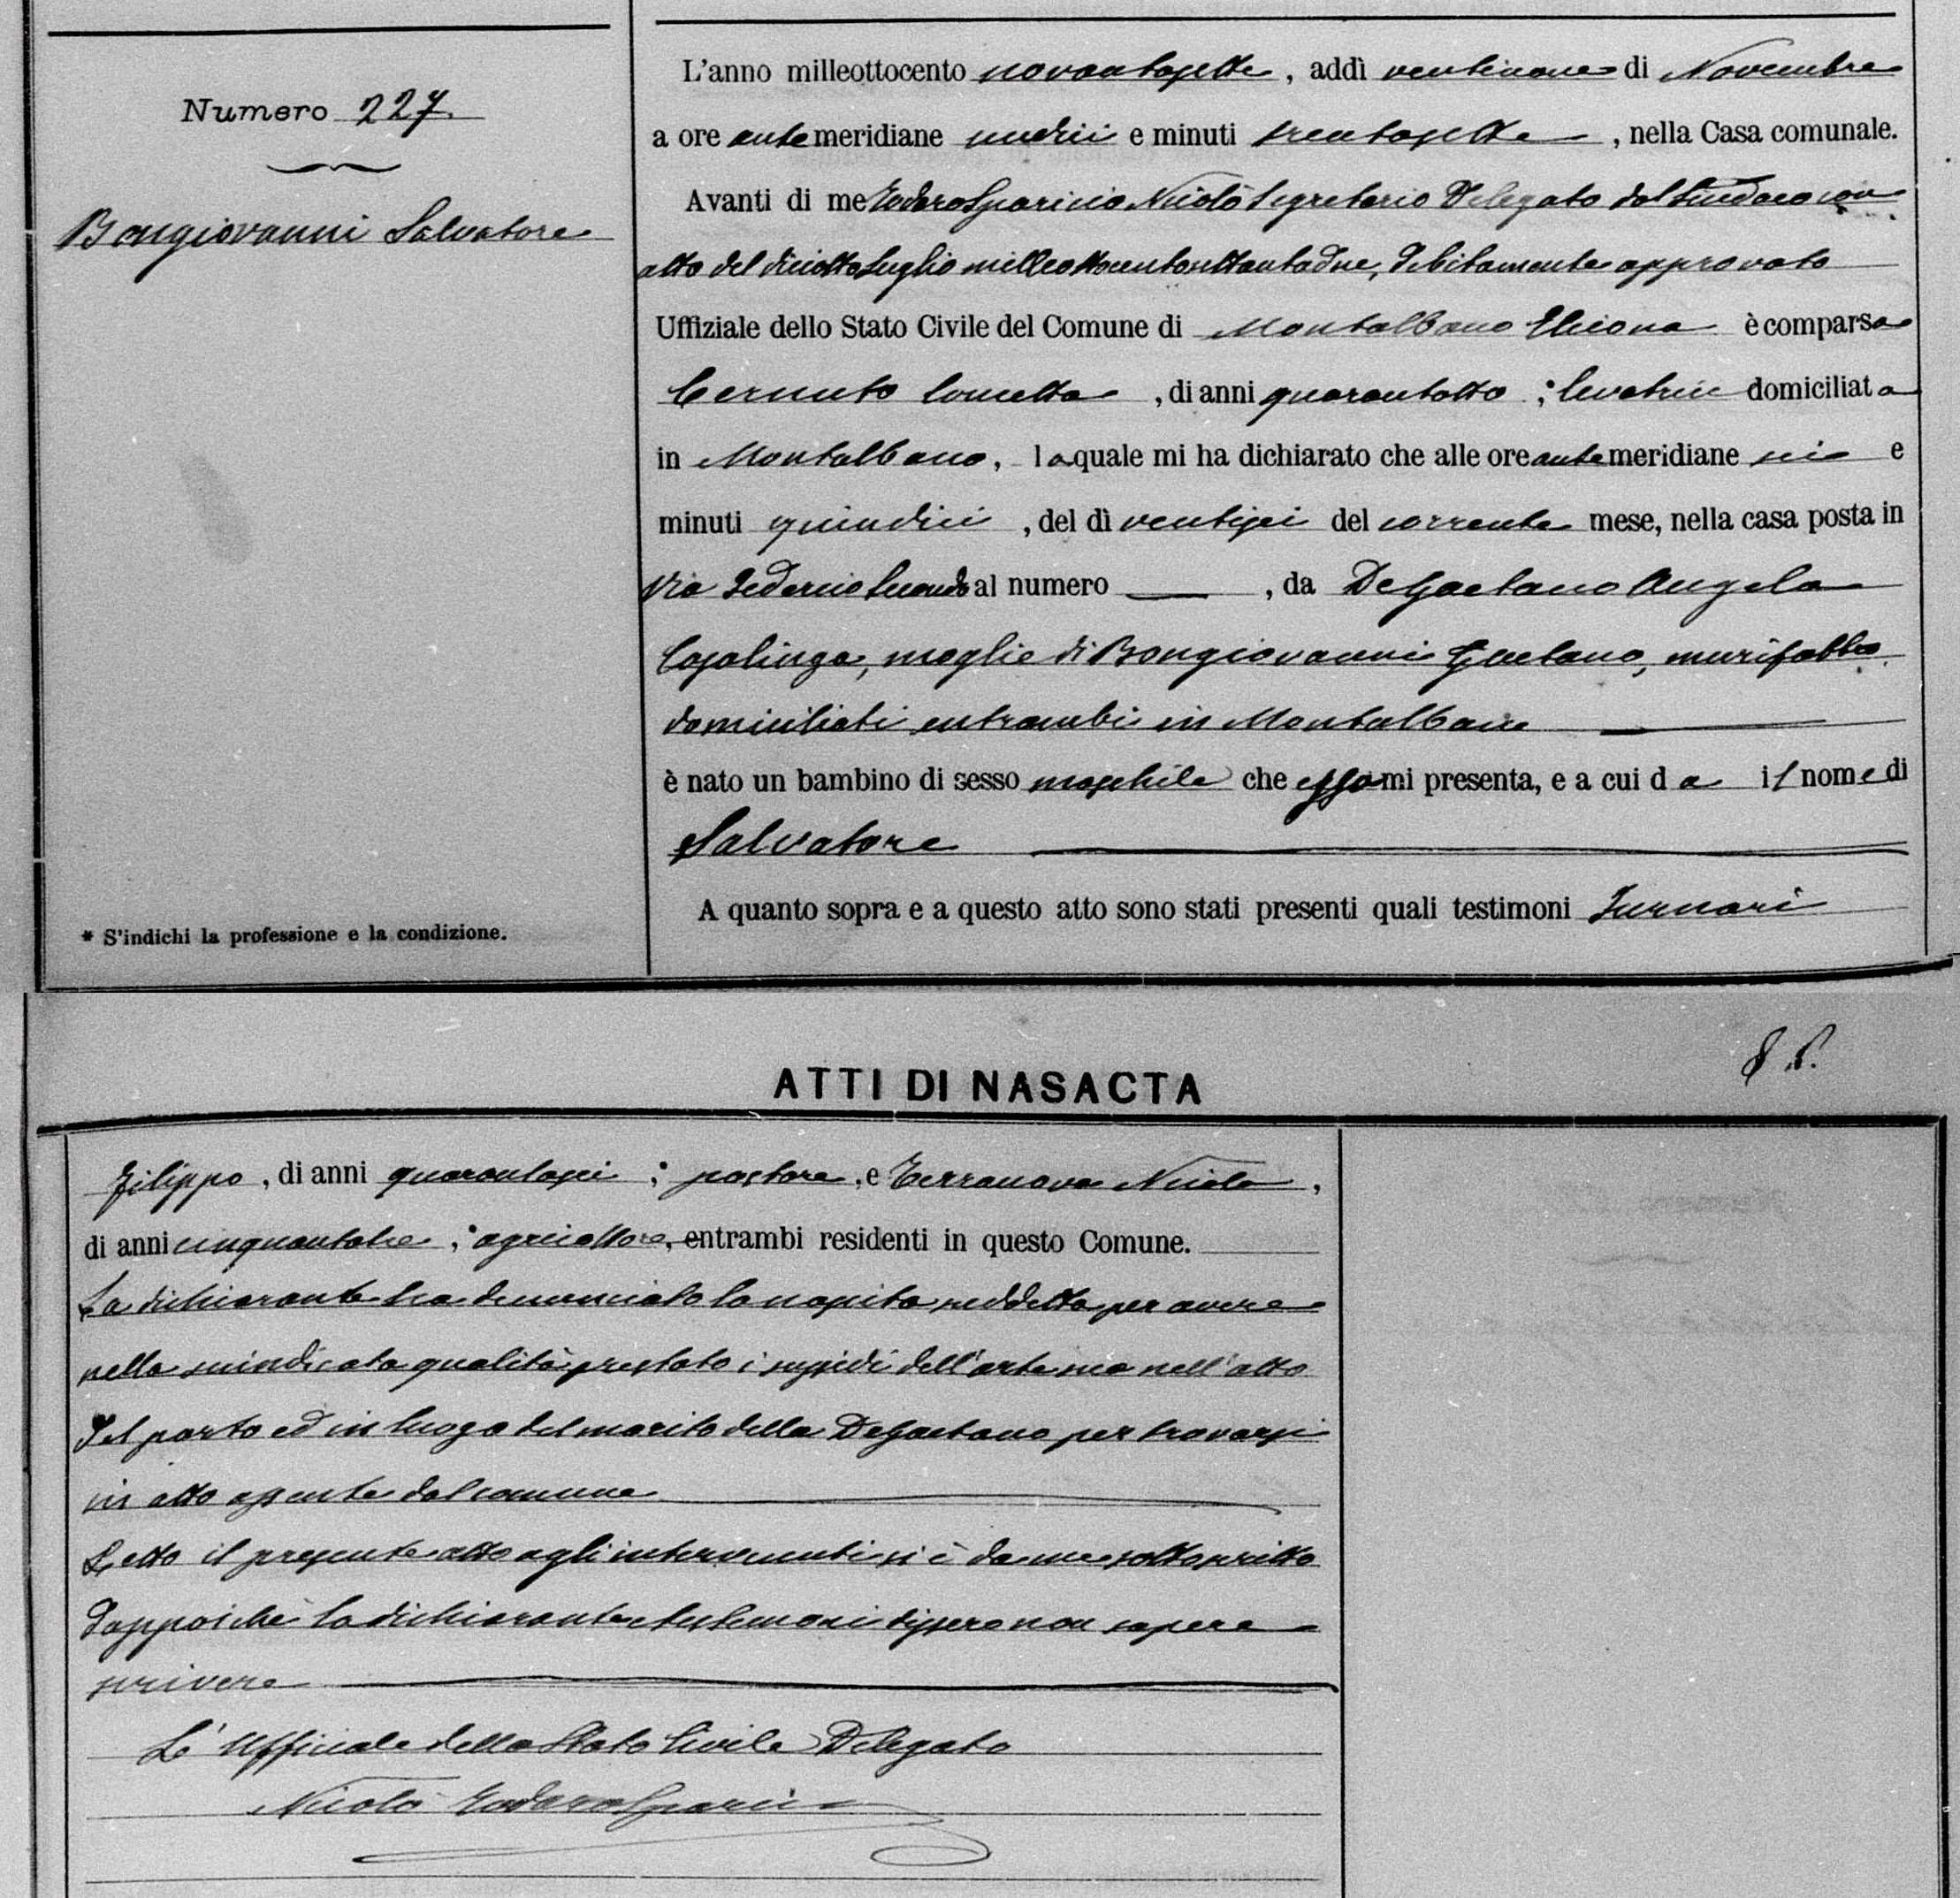 Numero 227.
Bongiovanni Salvatore
* S'indichi la professione e la condizione.
L'anno milleottocento novantasette, addì ventinove di Novembre
a ore antemeridiane undici e minuti trentasette, nella Casa comunale.
Avanti di me Todaro Sparicio Nicolò Segretario Delegato dal Sindaco con
atto del diciotto Luglio milleottocentosettantadue, debitamente approvato
Uffiziale dello Stato Civile del Comune di Montalbano Elicona è comparsa
Cernuto Concetta, di anni quarantotto; levatrice domiciliata
in Montalbano, la quale mi ha dichiarato che alle ore antemeridiane sei e
minuti quindici, del dì ventisei del corrente mese, nella casa posta in
Via Federico Secondo al numero —, da De Gaetano Angela
Casalinga, moglie di Bongiovanni Gaetano, murifabbro,
domiciliati entrambi in Montalbano
è nato un bambino di sesso maschile che essa mi presenta, e a cui da il nome di
Salvatore
A quanto sopra e a questo atto sono stati presenti quali testimoni Furnari
ATTI DI NASACTA
Filippo, di anni quarantasei; pastore, e Terranova Nicola,
di anni cinquantatre; agricoltore, entrambi residenti in questo Comune.
La dichiarante ha denunciato la nascita suddetta per avere
nella suindicata qualità prestato i sussidi dell'arte sua nell'atto
del parto ed in luogo del marito della De Gaetano per trovarsi
in atto assente dal comune
Letto il presente atto agli intervenuti si è da me sottoscritto
dappoichè la dichiarante e testimoni dissero non sapere
scrivere
L'Ufficiale dello Stato Civile Delegato
Nicolò Todaro Sparicio